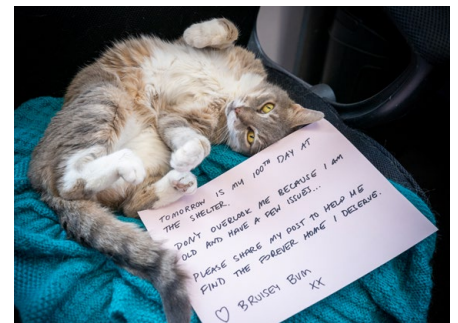 TOMORROW IS MY 100TH DAY AT
THE SHELTER.
DON'T OVERLOOK ME BECAUSE I AM
OLD AND HAVE A FEW ISSUES...
PLEASE SHARE MY POST TO HELP ME
FIND THE FOREVER HOME I DESERVE.
♡ BRUISEY BUM
XX